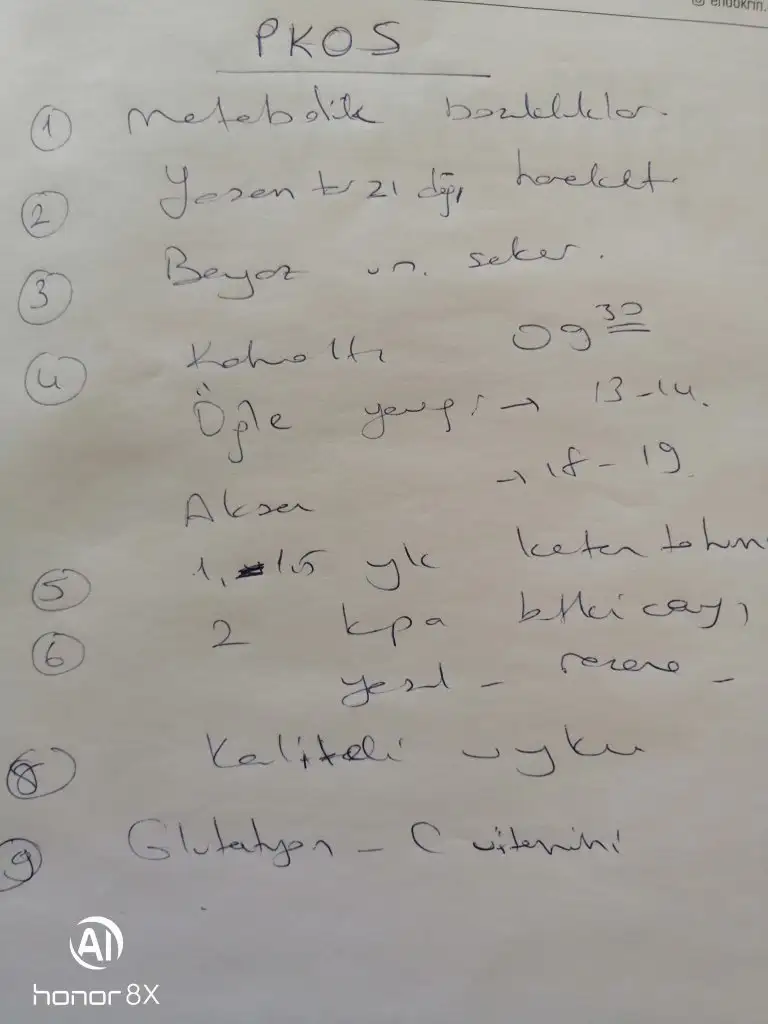 endokrin.
PKOS
① metabolik bozukluklar.
② Yaşam tarzı değı, hareket
③ Beyaz un. seker.
④ Kahvaltı 09³⁰
Öğle yemeği → 13-14.
Aksam → 18-19
⑤ 1,-1.5 yk keten tohum
⑥ 2 kupa bitki cayı
yesil - rezene -
⑧ Kaliteli uyku
⑨ Glutatyon - C vitamini
AI
honor 8X